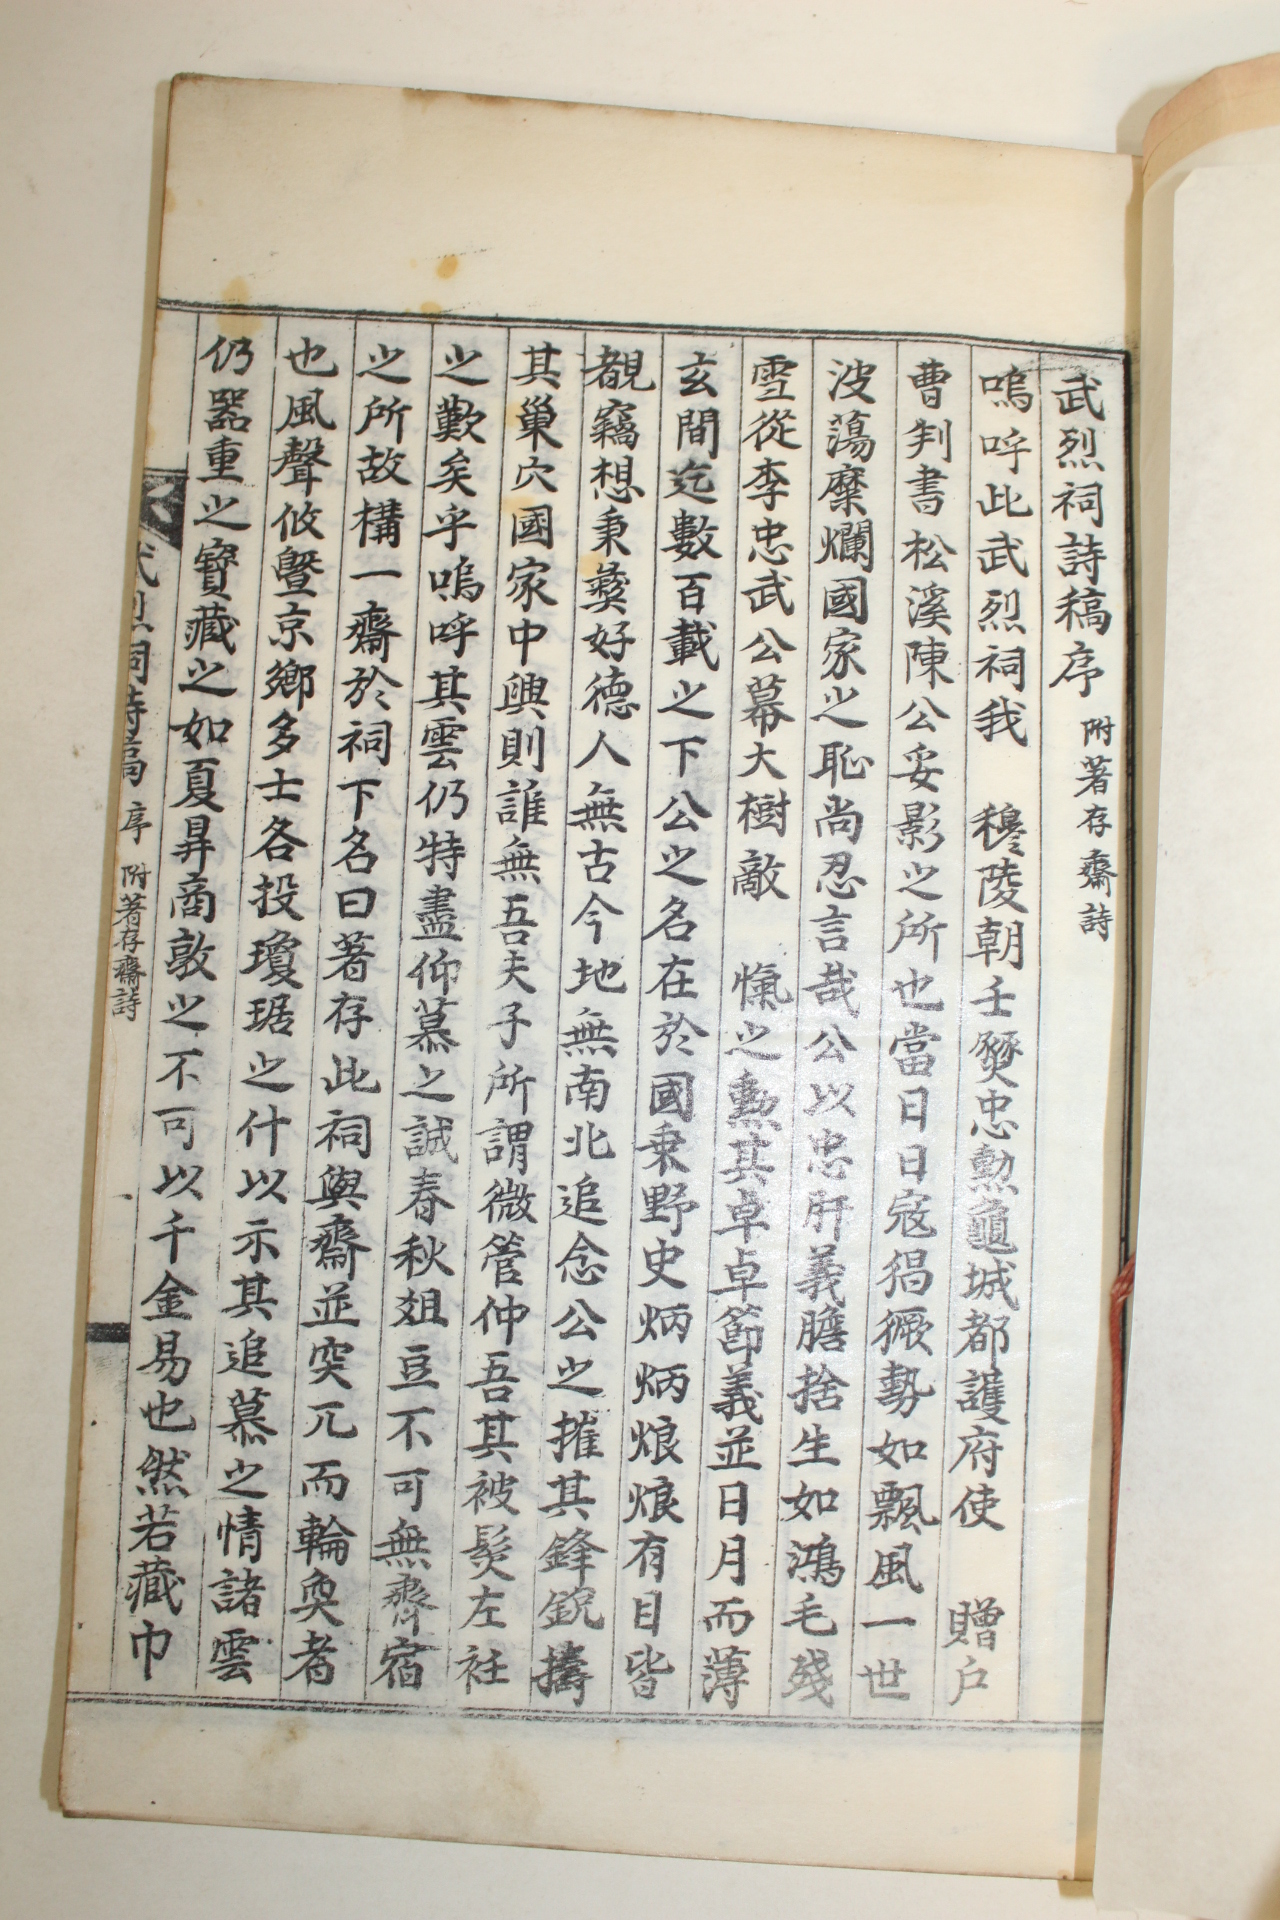 武烈祠詩稿序 附著存齋詩
嗚呼此武烈祠我 穆陵朝壬燹忠勳龜城都護府使 贈戶
曹判書松溪陳公妥影之所也當日日寇猖獗勢如飄風一世
波蕩糜爛國家之恥尚忍言哉公以忠肝義膽捨生如鴻毛殘
雪從李忠武公幕大樹敵 愾之勳其卓卓節義並日月而薄
玄間迄數百載之下公之名在於國乘野史炳炳烺烺有目皆
覩竊想秉彝好德人無古今地無南北追念公之摧其鋒銳擣
其巢穴國家中興則誰無吾夫子所謂微管仲吾其被髮左衽
之歎矣乎嗚呼其雲仍特盡仰慕之誠春秋俎豆不可無齊宿
之所故構一齋於祠下名曰著存此祠與齋並突兀而輪奐者
也風聲攸曁京鄉多士各投瓊琚之什以示其追慕之情諸雲
仍器重之寶藏之如夏鼎商敦之不可以千金易也然若藏巾
武烈祠詩稿 序 附著存齋詩